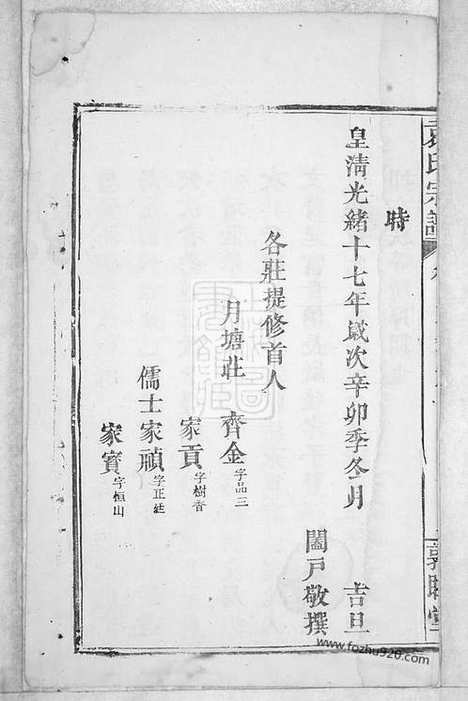 袁氏宗譜
時
皇清光緒十七年歲次辛卯季冬月 吉旦
闔戶敬撰
各莊提修首人
月塘莊 齊金字品三
家貢字樹香
儒士家禎字正廷
家寶字恒山
www.fozhu920.com